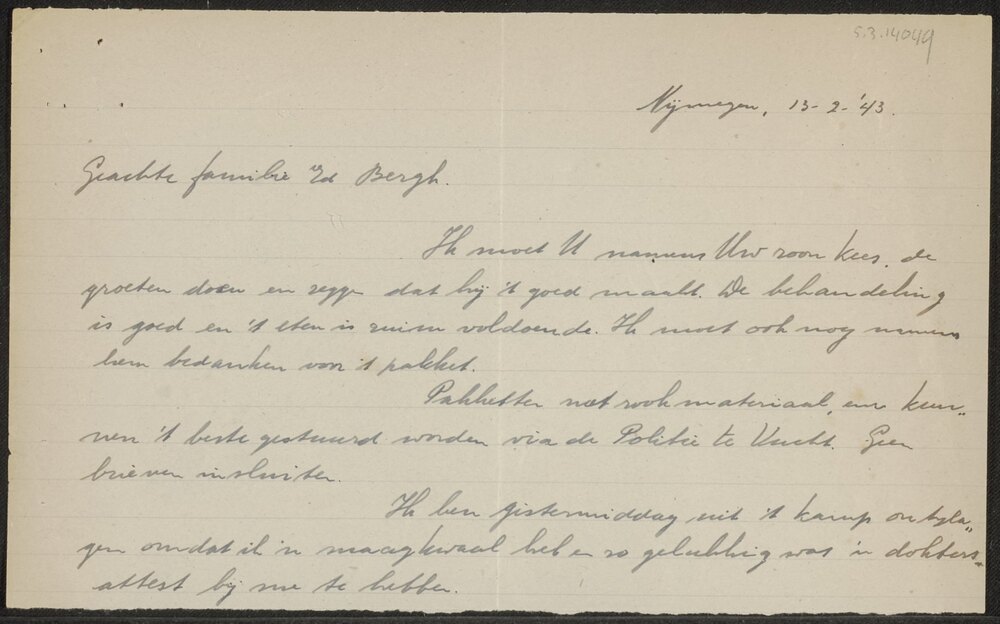 S.3.14049
Nijmegen, 13-2-'43.
Geachte familie Ed Bergh.
Ik moet U namens Uw zoon Kees, de
groeten doen en zeggen dat hij 't goed maakt. De behandeling
is goed en 't eten is ruim voldoende. Ik moet ook nog namens
hem bedanken voor 't pakket.
Pakketten met rookmateriaal, enz kun„
nen 't beste gestuurd worden via de Politie te Vucht. Geen
brieven insluiten.
Ik ben gistermiddag uit 't kamp ontsla„
gen omdat ik 'n maagkwaal heb en zo gelukkig was 'n dokters„
attest bij me te hebben.